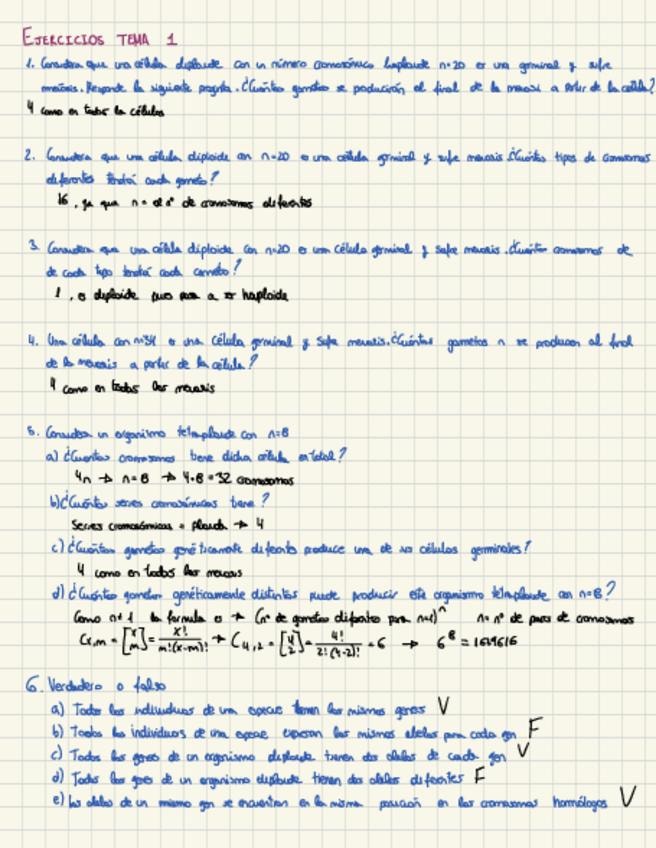 EJERCICIOS TEMA 1
1. Considera que una célula diploide con un número cromosómico haploide n=20 es una germinal y sufre
meiosis. Responde la siguiente pregunta. ¿Cuántos gametos se producirán al final de la meiosis a partir de la célula?
4 como en todas las células
2. Considera que una célula diploide con n=20 es una célula germinal y sufre meiosis. ¿Cuántos tipos de cromosomas
diferentes tendrá cada gameto?
16, ya que n = al nº de cromosomas diferentes
3. Considera que una célula diploide con n=20 es una célula germinal y sufre meiosis. ¿Cuántos cromosomas de
de cada tipo tendrá cada gameto?
1, es diploide pero pasa a ser haploide
4. Una célula con n=34 es una célula germinal y sufre meiosis. ¿Cuántos gametos n se producen al final
de la meiosis a partir de la célula?
4 como en todas las meiosis
5. Considera un organismo tetraploide con n=8
a) ¿Cuantos cromosomas tiene dicha célula en total?
4n → n=8 → 4·8=32 cromosomas
b) ¿Cuántas series cromosómicas tiene?
Series cromosómicas = ploidía → 4
c) ¿Cuántos gametos genéticamente diferentes produce una de sus células germinales?
4 como en todas las meiosis
d) ¿Cuántos gametos genéticamente distintos puede producir este organismo tetraploide con n=8?
Como n≠1 la formula es → (nº de gametos diferentes para n=1)^n n= nº de pares de cromosomas
Cx,m = [x m] = x!/m!(x-m)! → C4,2 = [4 2] = 4!/2!(4-2)! = 6 → 6^8 = 1679616
6. Verdadero o falso
a) Todos los individuos de una especie tienen los mismos genes V
b) Todos los individuos de una especie expresan los mismos alelos para cada gen F
c) Todos los genes de un organismo diploide tienen dos alelos de cada gen V
d) Todos los genes de un organismo diploide tienen dos alelos diferentes F
e) Los alelos de un mismo gen se encuentran en la misma posición en los cromosomas homólogos V